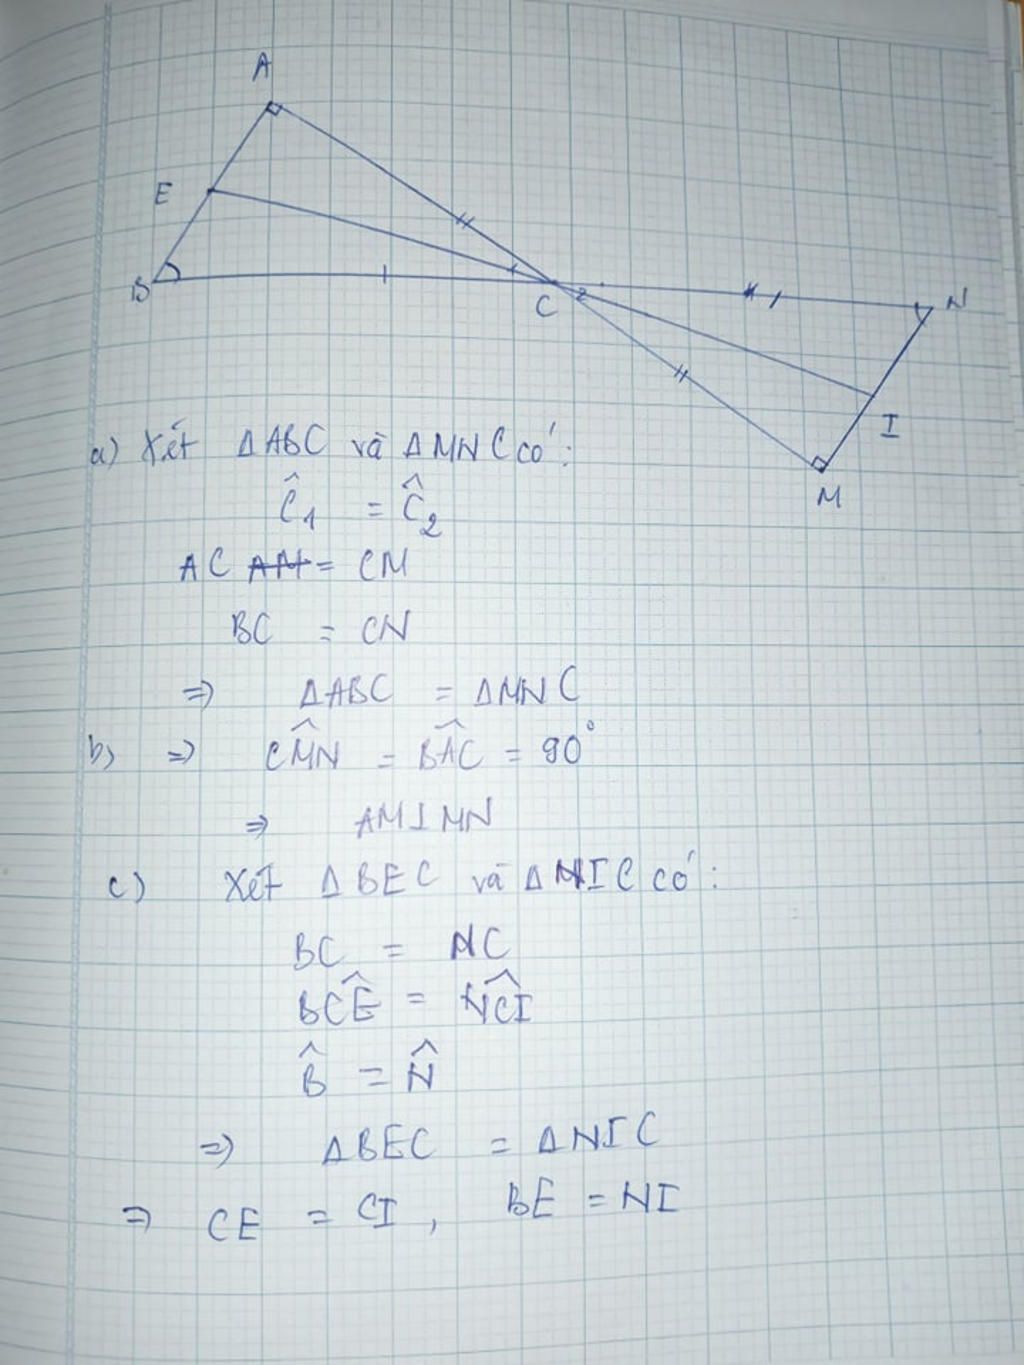 A
E
B
C
1
2
N
I
M
a) Xét ΔABC và ΔMNC có:
Ĉ₁ = Ĉ₂
AC AM = CM
BC = CN
=> ΔABC = ΔMNC
b) => CM̂N = BÂC = 90°
=> AM⊥MN
c) Xét ΔBEC và ΔNIC có:
BC = NC
BCÊ = NĈI
B̂ = N̂
=> ΔBEC = ΔNIC
=> CE = CI, BE = NI